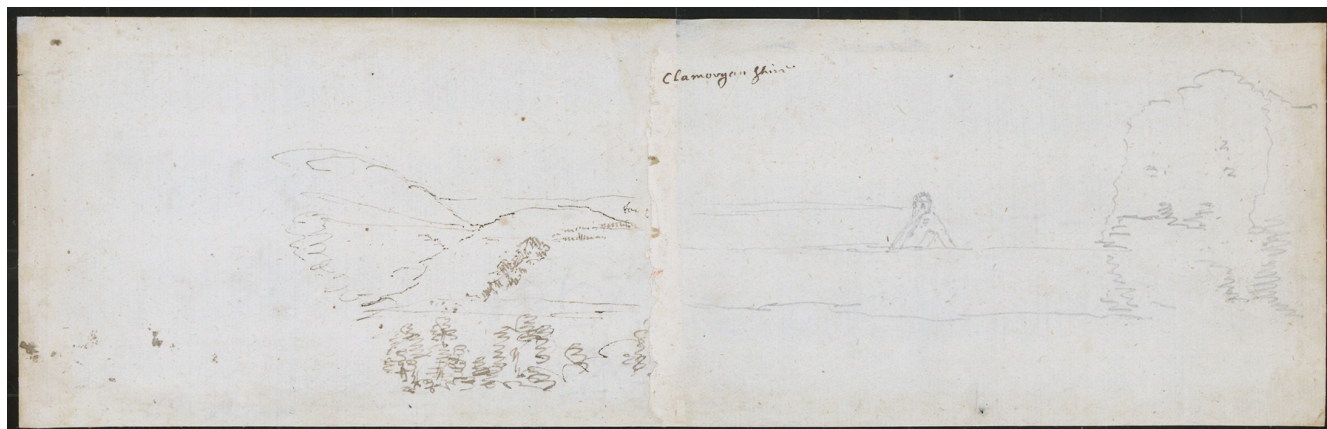 Clamorgan Shire